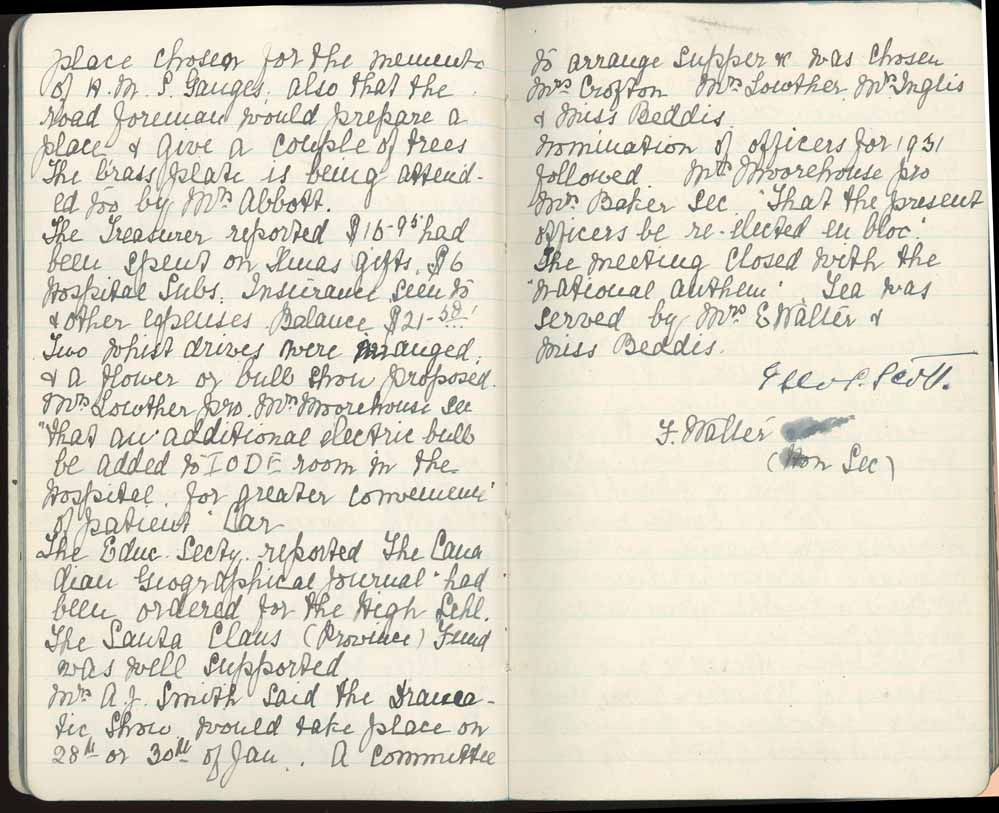 place chosen for the memento
of H. M. S. Ganges. also that the
road foreman would prepare a
place & give a couple of trees
The brass plate is being attend-
ed too by Mrs Abbott.
The Treasurer reported $16-95 had
been spent on Xmas gifts. $6
Hospital Subs. Insurance seen to
& other expenses. Balance $21-58
Two whist drives were arranged,
& a flower or bulb show proposed.
Mrs Lowther pro. Mrs Moorehouse sec
"that an additional electric bulb
be added to I O D E room in the
Hospital for greater convenience
of patient" Car
The Educ. Secty. reported The Cana
dian Geographical Journal" had
been ordered for the High Schl.
The Santa Claus (Province) Fund
was well supported
Mrs A. J. Smith said the Drama-
tic Show would take place on
28th or 30th of Jan. A committee
to arrange supper &c was chosen
Mrs Crofton Mrs Lowther, Mrs Inglis
& Miss Beddis.
Nomination of officers for 1931
followed. Mrs Moorehouse pro
Mrs Baker Sec. "That the present
officers be re-elected en bloc."
The meeting closed with the
"National Anthem". Tea was
served by Mrs E Walter &
Miss Beddis.
Scott.
F. Walter
(Hon Sec)